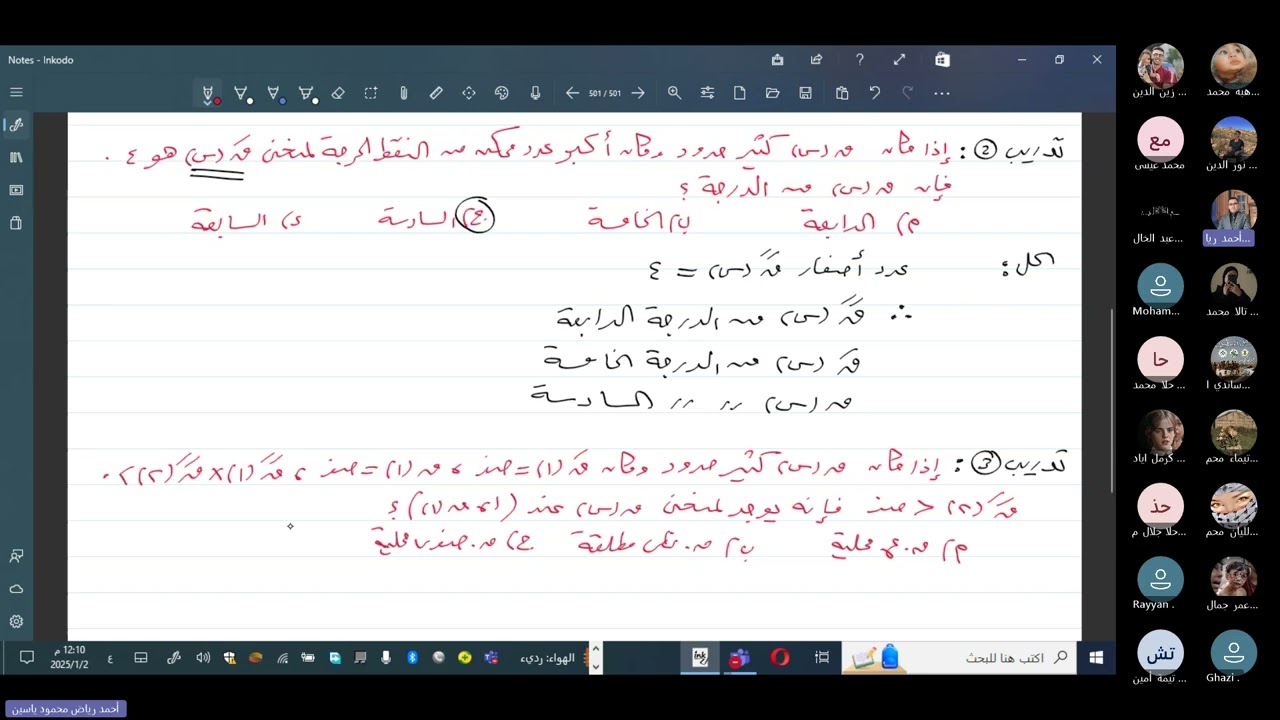 Notes - Inkodo
501 / 501
تدريب ② : إذا كان ق(س) كثير حدود وكان أكبر عدد ممكن من النقط الحرجة لمنحنى قَ(س) هو ٤ .
فإن ق(س) من الدرجة ؟
م) الرابعة ب) الخامسة ج) السادسة د) السابعة
الحل : عدد أصفار قً(س) = ٤
∴ قً(س) من الدرجة الرابعة
قَ(س) من الدرجة الخامسة
ق(س) // // السادسة
تدريب ③ : إذا كان ق(س) كثير حدود وكان قَ(١) = صفر ، ق(١) = صفر ، قً(١) × قً(٢) > ٠
قً(٢) < صفر فإنه يوجد لمنحنى ق(س) عند (١، ق(١)) ؟
م) ق. ع محلية ب) ق. مطلقة ج) ق. صغرى محلية
زين الدين ...
هبة محمد
مع
محمد عيسى
نور الدين ...
عبد الخال...
أحمد ريا...
Moham...
تالا محمد
حا
حلا محمد ...
ساندي ا...
كرمل اياد ...
تيماء محم...
حذ
حلا جلال م...
ليان محم...
Rayyan .
عمر جمال ...
تش
تيمة أمين ...
Ghazi .
12:10 م
2025/1/2
ع
الهواء: رديء
اكتب هنا للبحث
أحمد رياض محمود ياسين